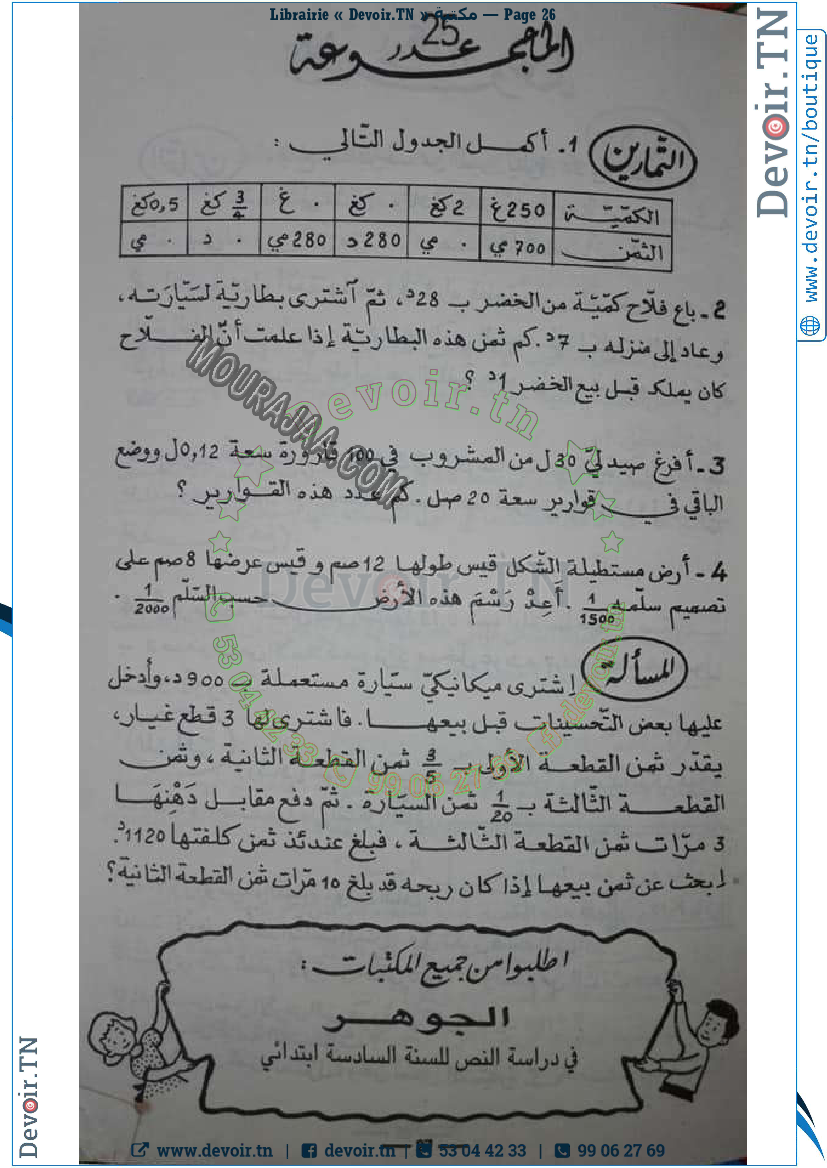 Librairie « Devoir.TN » مكتبة — Page 26
المجموعة عدد 25
التمارين
1. أكمل الجدول التالي :
الكمّيّة 250غ 2كغ . كغ . غ 3/4 كغ 0,5كغ
الثمن 700 مي . مي 280 د 280 مي . د . مي
2 - باع فلّاح كمّيّة من الخضر بـ 28د، ثمّ آشترى بطاريّة لسيّارته،
وعاد إلى منزله بـ 7د. كم ثمن هذه البطاريّة إذا علمت أنّ الفلاّح
كان يملك قبل بيع الخضر 1د ؟
3 - أفرغ صيدليّ 30 ل من المشروب في 100 قارورة سعة 0,12ل ووضع
الباقي في قوارير سعة 20 صل . كم عدد هذه القوارير ؟
4 - أرض مستطيلة الشّكل قيس طولها 12 صم و قيس عرضها 8 صم على
تصميم سلّمه 1/1500 . أَعِدْ رَسْمَ هذه الأرض حسب السّلّم 1/2000 .
المسألة
إشترى ميكانيكيّ سيّارة مستعملة بـ 900 د، وأدخل
عليها بعض التّحسينات قبل بيعها . فاشترى لها 3 قطع غيار،
يقدّر ثمن القطعة الأولى بـ 3/5 ثمن القطعة الثانية ، وثمن
القطعة الثّالثة بـ 1/20 ثمن السيّارة . ثمّ دفع مقابل دَهْنِهَا
3 مرّات ثمن القطعة الثّالثة ، فبلغ عندئذ ثمن كلفتها 1120د.
ابحث عن ثمن بيعها إذا كان ربحه قد بلغ 10 مرّات ثمن القطعة الثانية؟
اطلبوا من جميع المكتبات :
الجوهر
في دراسة النص للسنة السادسة ابتدائي
MOURAJAA.COM
Devoir.tn
Devoir.TN
53 04 42 33
99 06 27 69
devoir.tn
Devoir.TN
www.devoir.tn/boutique
Devoir.TN
www.devoir.tn | devoir.tn | 53 04 42 33 | 99 06 27 69